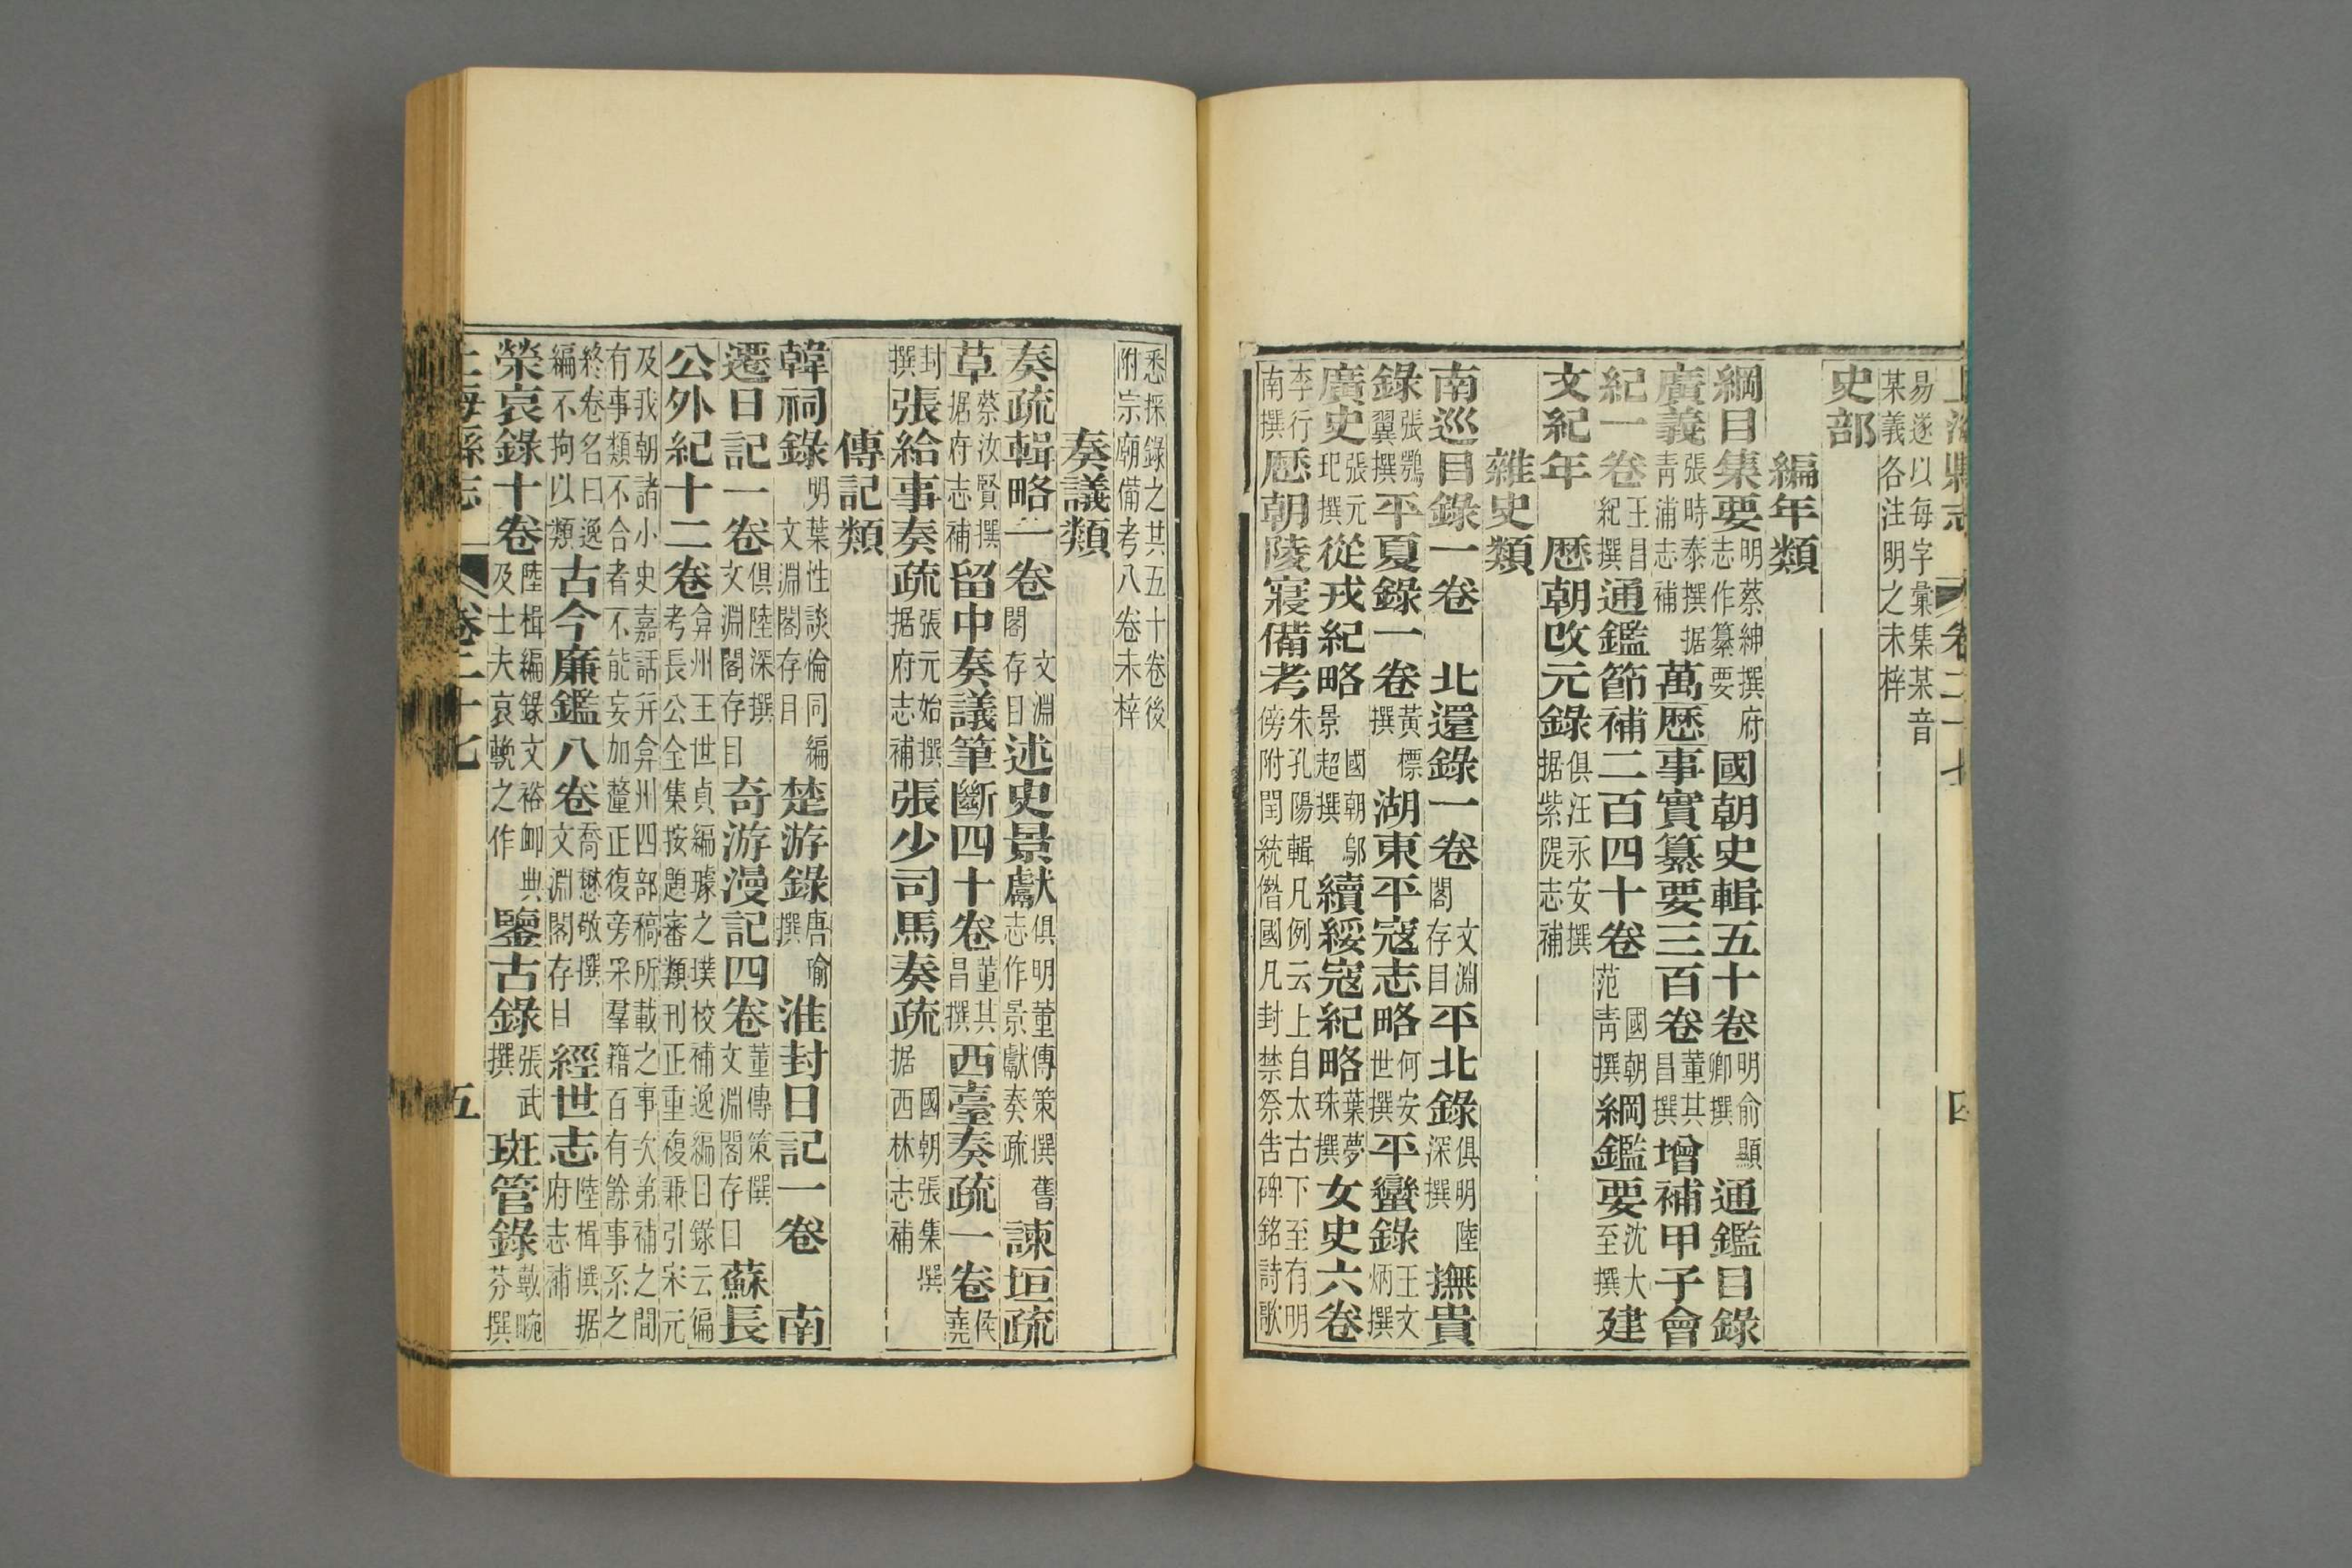 上海縣志 卷二十七 四
易遂以每字彙集某音
某義各注明之未梓
史部
編年類
綱目集要明蔡紳撰府志作纂要 國朝史輯五十卷明俞顯卿撰 通鑑目錄
廣義張時泰撰据青浦志補 萬歷事實纂要三百卷董其昌撰 增補甲子會
紀一卷王昌紀撰 通鑑節補二百四十卷國朝范青撰 綱鑑要沈大至撰 建
文紀年 歷朝改元錄俱汪永安撰据紫隄志補
雜史類
南巡日錄一卷 北還錄一卷文淵閣存目 平北錄俱明陸深撰 撫貴
錄張鶚翼撰 平夏錄一卷黃標撰 湖東平寇志略何安世撰 平蠻錄王文炳撰
廣史張元玘撰 從戎紀略國朝鄔景超撰 續綏寇紀略葉夢珠撰 女史六卷
李行南撰 歷朝陵寢備考朱孔陽輯凡例云上自太古下至有明傍附閏統僭國凡封禁祭告碑銘詩歌
悉採錄之其五十卷後
附宗廟備考八卷未梓
奏議類
奏疏輯略一卷文淵閣存目 述史景獻俱明董傳策撰舊志作景獻奏疏 諫垣疏
草蔡汝賢撰据府志補 留中奏議筆斷四十卷董其昌撰 西臺奏疏一卷侯堯
封撰 張給事奏疏張元始撰据府志補 張少司馬奏疏國朝張集撰据西林志補
傳記類
韓祠錄明葉性談倫同編文淵閣存目 楚游錄唐瑜撰 淮封日記一卷 南
遷日記一卷俱陸深撰文淵閣存目 奇游漫記四卷董傳策撰文淵閣存目 蘇長
公外紀十二卷弇州王世貞編璩之璞校補逸編目錄云偏考長公全集按題審類刊正重複兼引宋元
及我朝諸小史嘉話幷弇州四部稿所載之事次弟補之間
有事類不合者不能妄加釐正復旁采羣籍百有餘事系之
終卷名曰逸編不拘以類 古今廉鑑八卷喬懋敬撰文淵閣存目 經世志陸楫撰据府志補
榮哀錄十卷陸楫編錄文裕卹典及士夫哀輓之作 鑒古錄張武撰 斑管錄戴畹芬撰
上海縣志 卷二十七 五